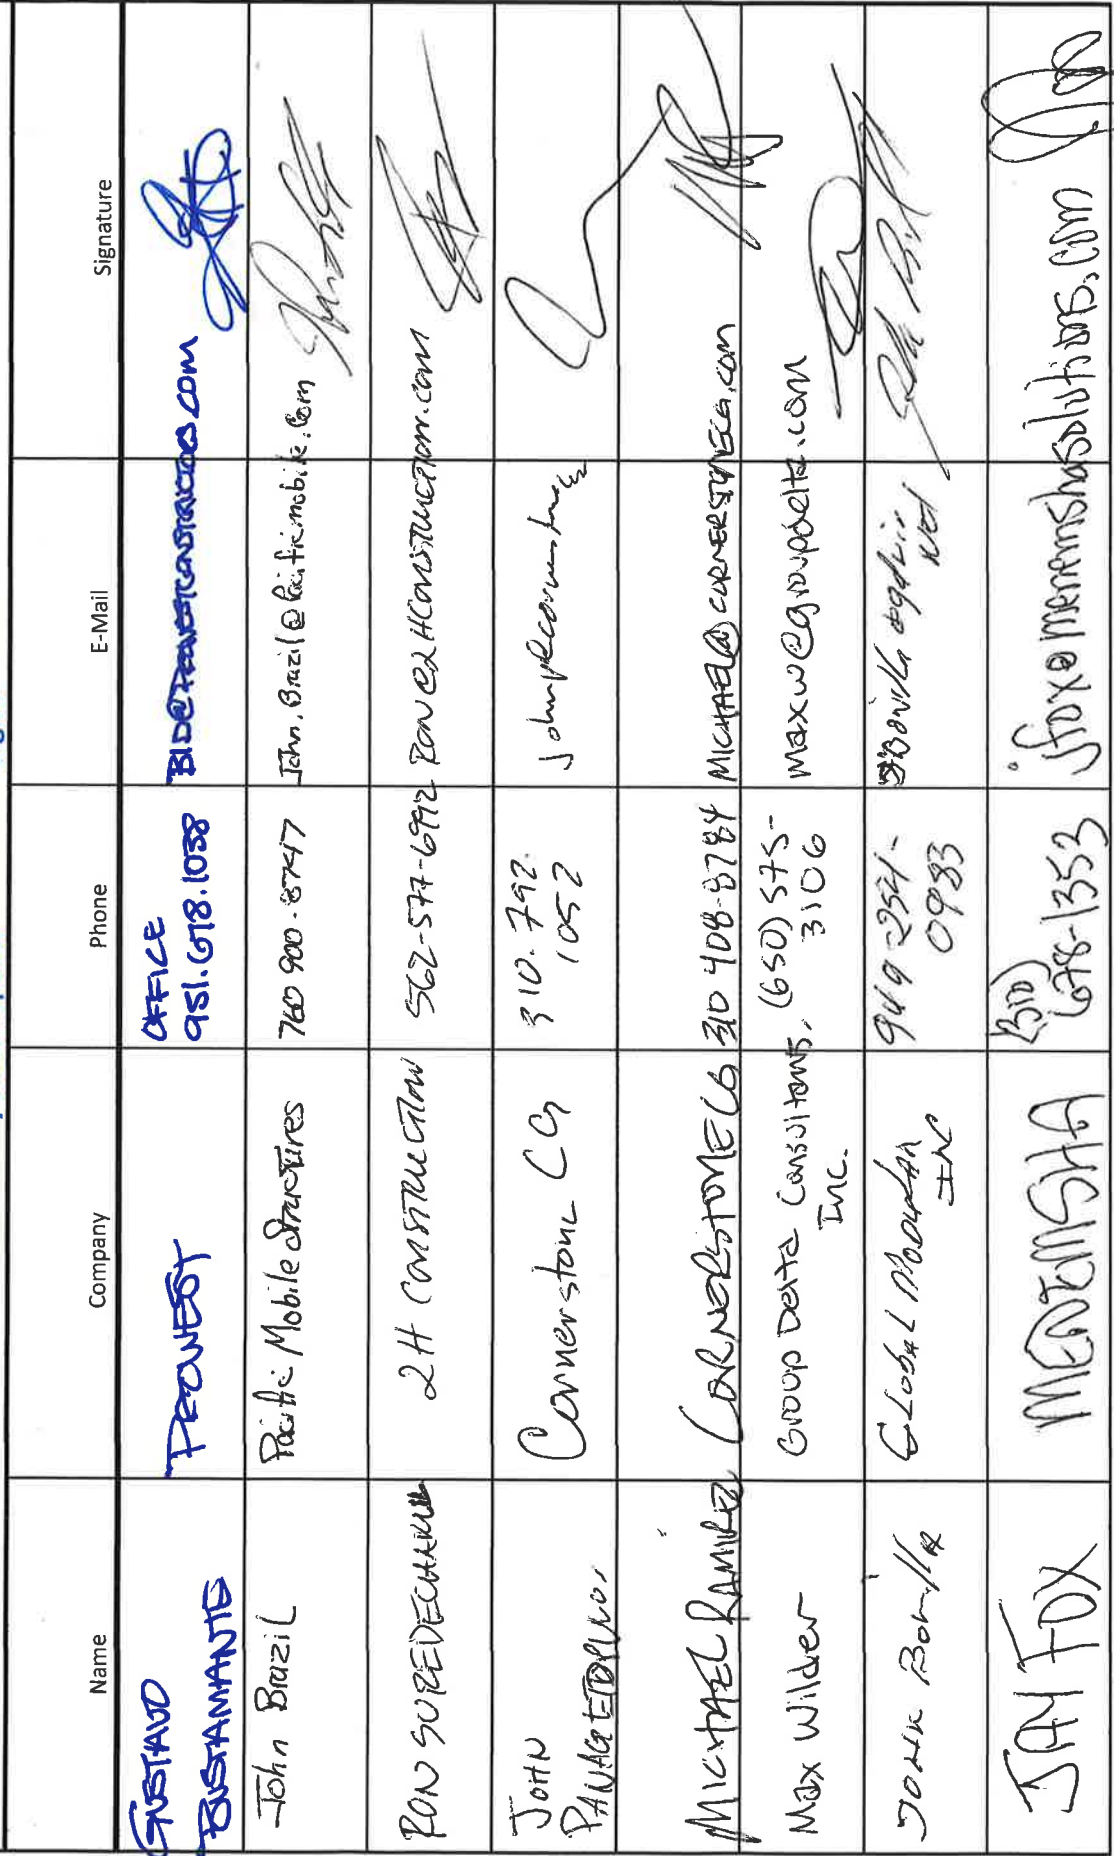 Name Company Phone E-Mail Signature
GUSTAVO BUSTAMANTE PROWEST OFFICE 951.678.1038 BID@PROWESTCONSTRUCTORS.COM
John Brazil Pacific Mobile Structures 760 900-8747 John.Brazil@Pacificmobile.com
RON 2H CONSTRUCTION 562-577-6992 RON@2HCONSTRUCTION.COM
JOHN Cornerstone CG 310-792-1052
MICHAEL RAMIREZ CORNERSTONE CG 310 408-8784 MICHAEL@CORNERSTONECG.com
Max Wilder Group Delta Consultants, Inc. (650) 575-3106 maxw@groupdelta.com
Bonilla GLOBAL MODULAR INC 949-254-0983
JAY FOX MENEMSHA (310) 678-1353 jfox@menemshasolutions.com